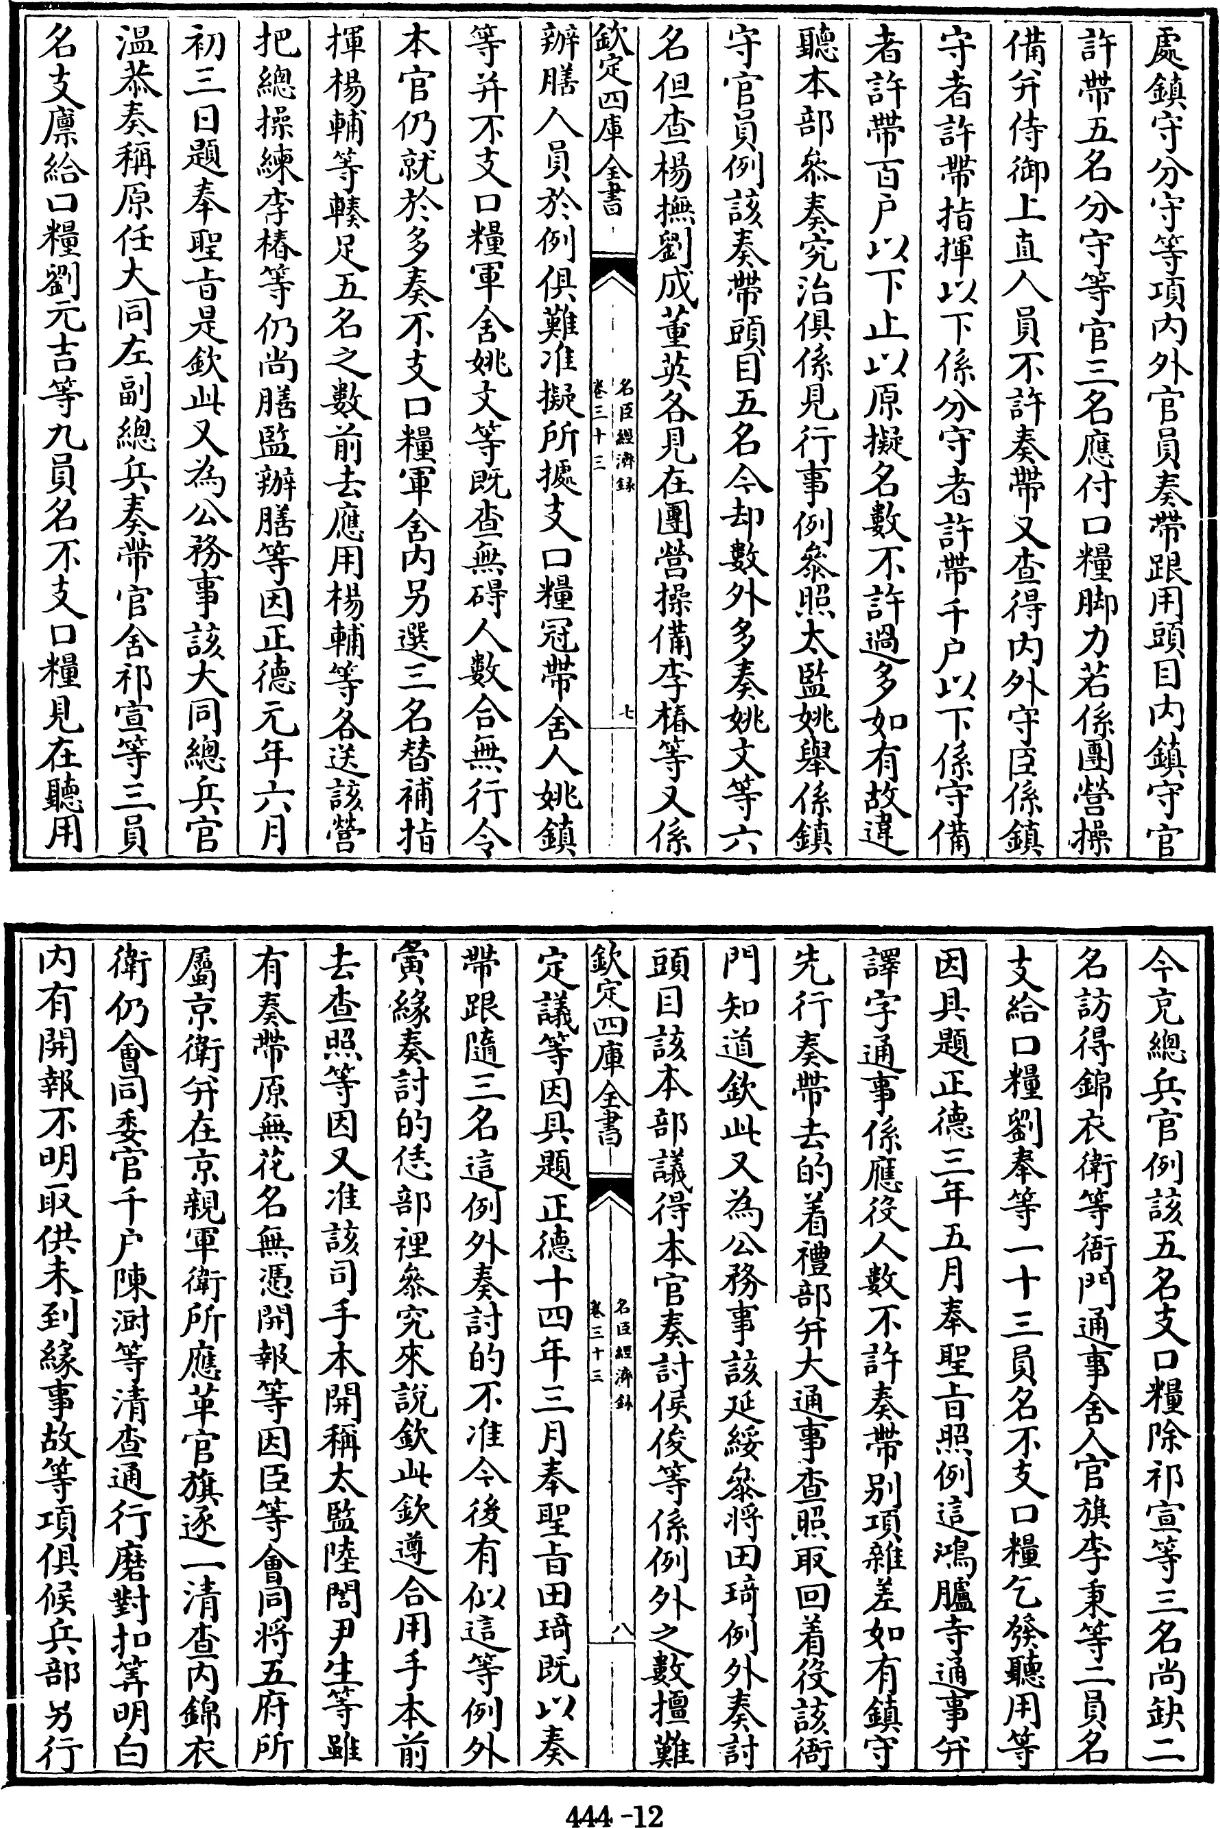 處鎮守分守等項内外官員奏帶跟用頭目内鎮守官
許帶五名分守等官三名應付口糧脚力若係團營操
備并侍御上直人員不許奏帶又查得内外守臣係鎮
守者許帶指揮以下係分守者許帶千户以下係守備
者許帶百户以下止以原擬名數不許過多如有故違
聽本部叅奏究治俱係見行事例叅照太監姚舉係鎮
守官員例該奏帶頭目五名今却數外多奏姚文等六
名但查楊撫劉成董英各見在團營操備李椿等又係
欽定四庫全書
名臣經濟録
卷三十三
七
辦膳人員於例俱難准擬所據支口糧冠帶舍人姚鎮
等并不支口糧軍舍姚文等既查無碍人數合無行令
本官仍就於多奏不支口糧軍舍内另選三名替補指
揮楊輔等輳足五名之數前去應用楊輔等各送該營
把總操練李椿等仍尚膳監辦膳等因正德元年六月
初三日題奉聖旨是欽此又為公務事該大同總兵官
温恭奏稱原任大同左副總兵奏帶官舍祁宣等三員
名支廪給口糧劉元吉等九員名不支口糧見在聽用
今充總兵官例該五名支口糧除祁宣等三名尚缺二
名訪得錦衣衛等衙門通事舍人官旗李秉等二員名
支給口糧劉奉等一十三員名不支口糧乞發聽用等
因具題正德三年五月奉聖旨照例這鴻臚寺通事并
譯字通事係應役人數不許奏帶别項雜差如有鎮守
先行奏帶去的着禮部并大通事查照取回着役該衙
門知道欽此又為公務事該延綏叅將田琦例外奏討
頭目該本部議得本官奏討侯俊等係例外之數擅難
欽定四庫全書
名臣經濟録
卷三十三
八
定議等因具題正德十四年三月奉聖旨田琦既以奏
帶跟隨三名這例外奏討的不准今後有似這等例外
夤緣奏討的恁部裡叅究來說欽此欽遵合用手本前
去查照等因又准該司手本開稱太監陸誾尹生等雖
有奏帶原無花名無憑開報等因臣等會同將五府所
屬京衛并在京親軍衛所應革官旗逐一清查内錦衣
衛仍會同委官千户陳澍等清查通行磨對扣筭明白
内有開報不明取供未到緣事故等項俱候兵部另行
444-12